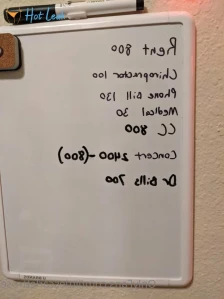 Hot Leathers
Rent 800
Chiropractor 100
Phone Bill 130
Medical 30
CC 800
Concert 2400 -(800)
Dr Bills 700